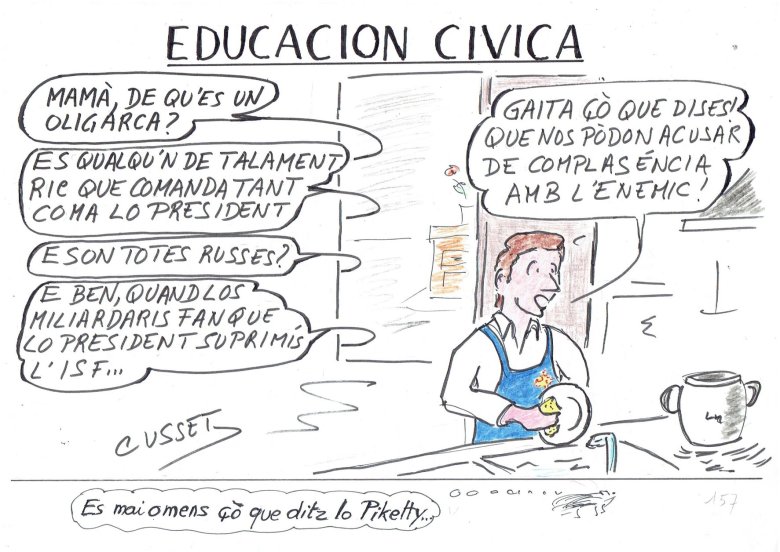 EDUCACION CIVICA
MAMÀ, DE QU'ES UN
OLIGARCA?
ES QUALQU'N DE TALAMENT
RIC QUE COMANDA TANT
COMA LO PRESIDENT
E SON TOTES RUSSES?
E BEN, QUAND LOS
MILIARDARIS FAN QUE
LO PRESIDENT SUPRIMÍS
L'ISF...
GAITA ÇÒ QUE DISES!
QUE NOS PÒDON ACUSAR
DE COMPLASÉNCIA
AMB L'ENEMIC!
CUSSET
Es mai o mens çò que ditz lo Piketty...
157